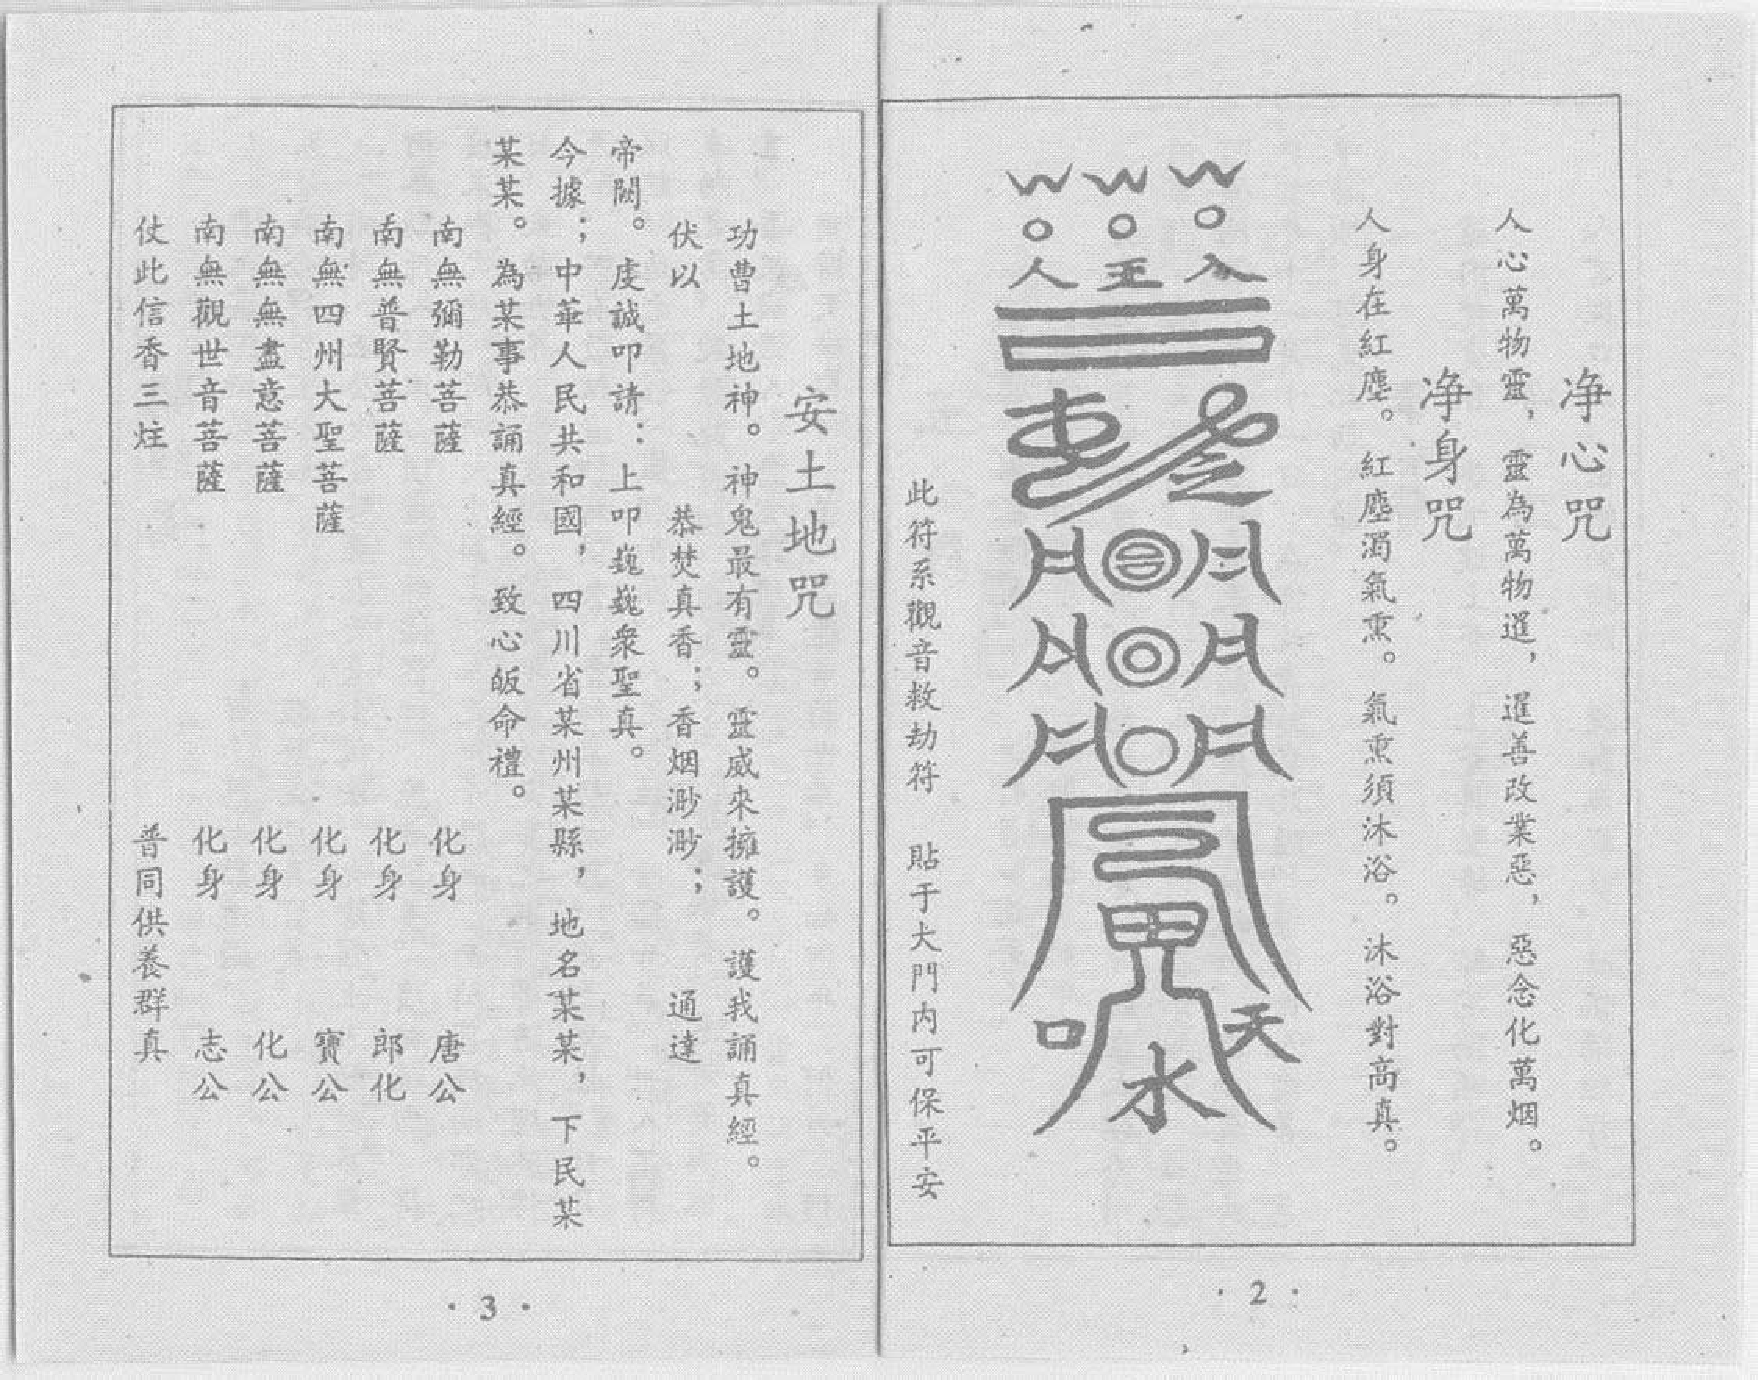 净心咒
人心萬物靈，靈為萬物選，選善改業惡，惡念化萬烟。
净身咒
人身在紅塵。紅塵濁氣熏。氣熏須沐浴。沐浴對高真。
人王人
口水天
此符系觀音救劫符 貼于大門内可保平安
· 2 ·
安土地咒
功曹土地神。神鬼最有靈。靈威來擁護。護我誦真經。
伏以 恭焚真香；香烟渺渺； 通達
帝闕。虔誠叩請：上叩巍巍衆聖真。
今據；中華人民共和國，四川省某州某縣，地名某某，下民某
某某。為某事恭誦真經。致心皈命禮。
南無彌勒菩薩 化身 唐公
南無普賢菩薩 化身 郎化
南無四州大聖菩薩 化身 寶公
南無無盡意菩薩 化身 化公
南無觀世音菩薩 化身 志公
仗此信香三炷 普同供養群真
· 3 ·